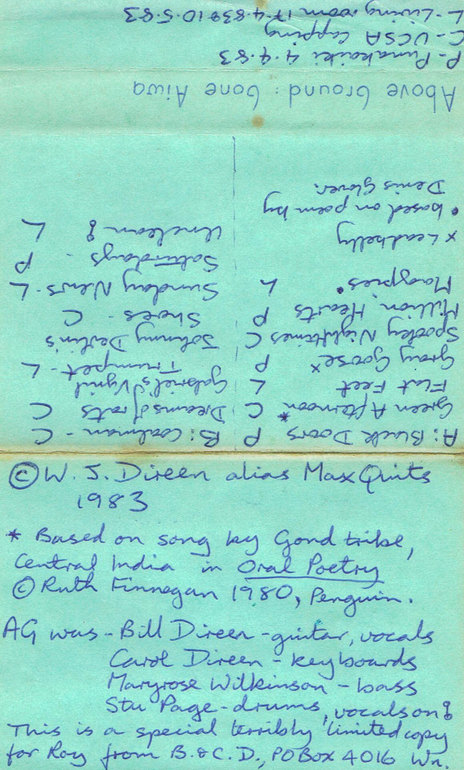 A: Black Doors P
Green Afternoon* C
Flat Feet L
Gray Goose x P
Spooky C
Million Hearts P
Magpies • L
x Leadbelly
• based on poem by
Denis Glover.
B: Coalman - C
Dreams of rats C
Gabriel's Vigil
Trumpet - L
Johnny Devlin's
Shoes - C
Sunday News - L
Saturdays - P
Unclean § L
Above Ground: Gone Aiwa
P - Punakaiki 4.4.83
C - UCSA Capping
L - Living room 17.4.83 & 10.5.83
© W. J. Direen alias Max Quits
1983
* Based on song by Gond tribe,
Central India in Oral Poetry
© Ruth Finnegan 1980, Penguin.
AG was - Bill Direen - guitar, vocals
Carol Direen - keyboards
Maryrose Wilkinson - bass
Stu Page - drums, vocals on §
This is a special terribly limited copy
for Roy from B. & C. D., PO Box 4016 Wn.